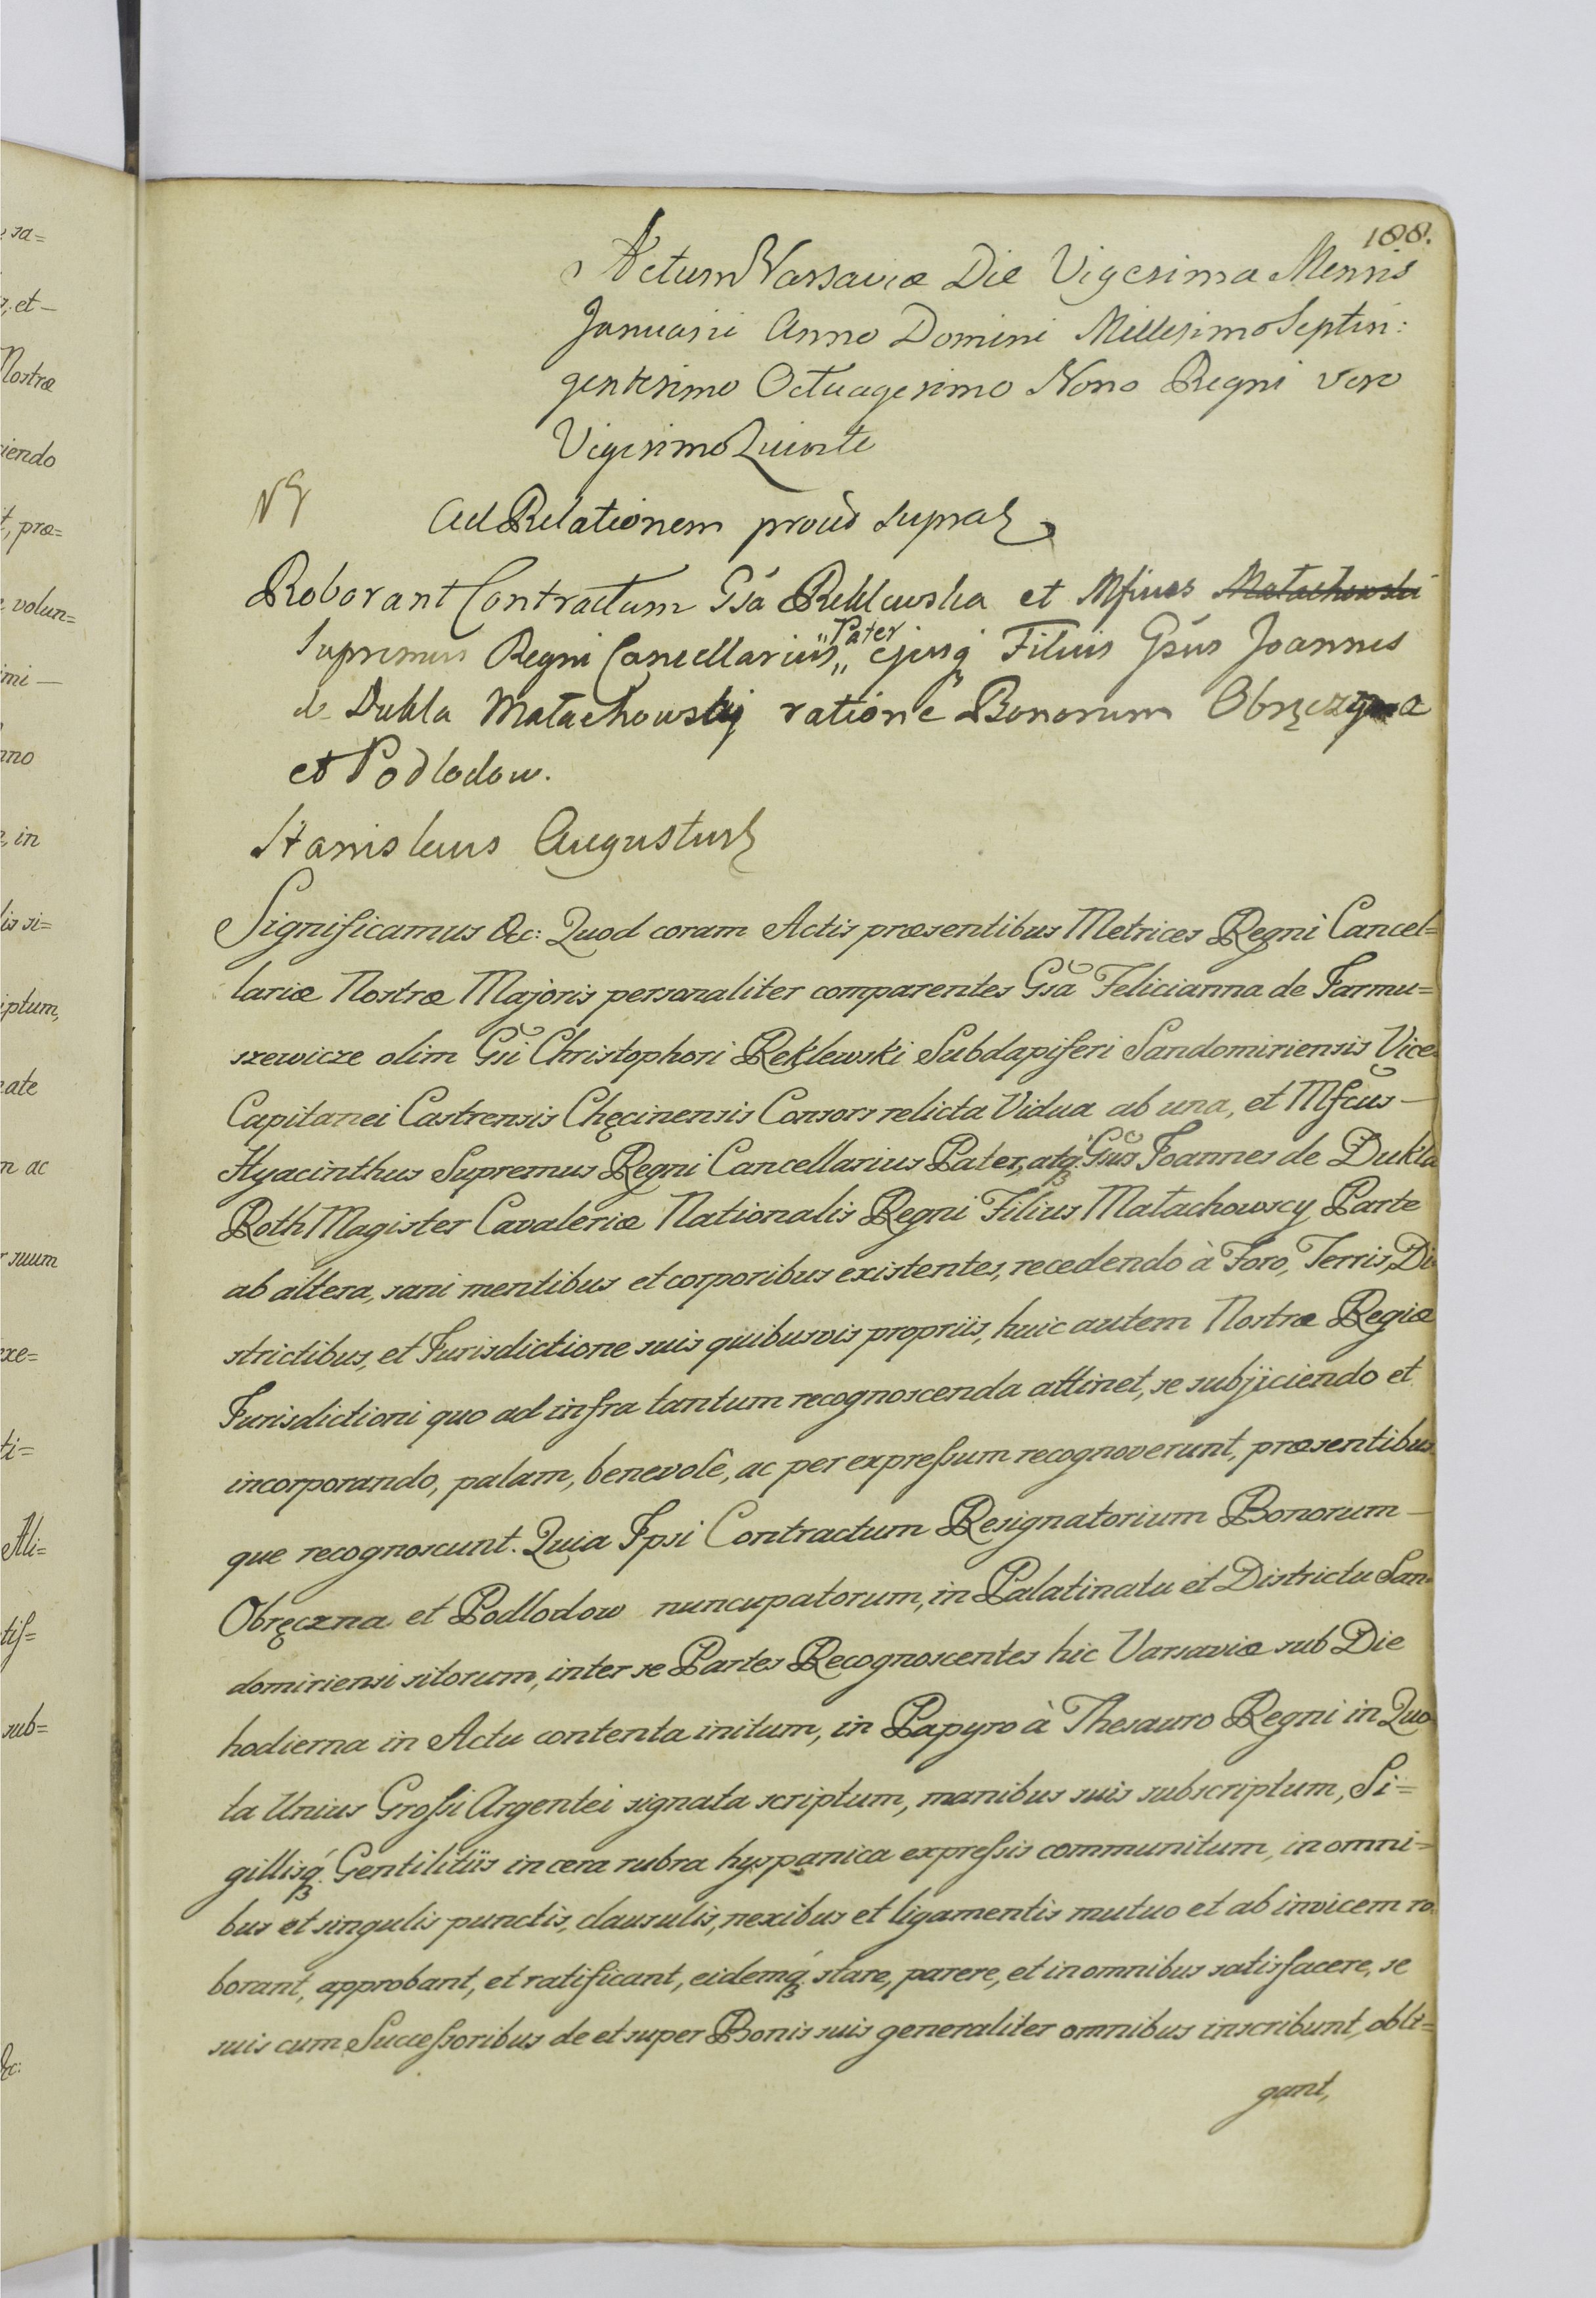 188.
Actum Varsaviæ Die Vigesima Mensis
Januarii Anno Domini Millesimo Septin:
gentesimo Octuagesimo Nono Regni vero
Vigesimo Quinto
Ad Relationem prout supra
Roborant Contractum Gsa Reklewska et Mficus Małachowski
Supremus Regni Cancellarius „Pater„ ejusq Filius Gsus Joannes
de Dukla Małachowscy ratione Bonorum Obręczna
et Podlodow.
Stanislaus Augustus
Significamus &c: Quod coram Actis præsentibus Metrices Regni Cancel=
lariæ Nostræ Majoris personaliter comparentes Gsa Felicianna de Jarmu=
szewicze olim Gsi Christophori Reklewski Subdapiferi Sandomiriensis Vice
Capitanei Castrensis Chęcinensis Consors relicta Vidua ab una, et Mfcus —
Hyacinthus Supremus Regni Cancellarius Pater, atq Gsus Joannes de Dukla
Roth Magister Cavaleriæ Nationalis Regni Filius Małachowscy Parte
ab altera, sani mentibus et corporibus existentes, recedendo à Foro, Terris, Di
strictibus, et Jurisdictione suis quibusvis propriis, huic autem Nostræ Regiæ
Jurisdictioni quo ad infra tantum recognoscenda attinet, se subjiciendo et
incorporando, palam, benevolê, ac per expreſsum recognoverunt, præsentibus
que recognoscunt. Quia Ipsi Contractum Resignatorium Bonorum —
Obręczna et Podlodow nuncupatorum, in Palatinatu et Districtu San=
domiriensi sitorum, inter se Partes Recognoscentes hic Varsaviæ sub Die
hodierna in Actu contenta initum, in Papyro à Thesauro Regni in Quo
ta Unius Groſsi Argentei signata scriptum, manibus suis subscriptum, Si=
gillisq́ Gentilitiis in cera rubra hyspanica expreſsis communitum, in omni=
bus et singulis punctis, clausulis, nexibus et ligamentis mutuo et ab invicem ro
borant, approbant, et ratificant, eidemq́ stare, parere, et in omnibus satisfacere, se
suis cum Succeſsoribus de et super Bonis suis generaliter omnibus inscribunt, obli=
gant,